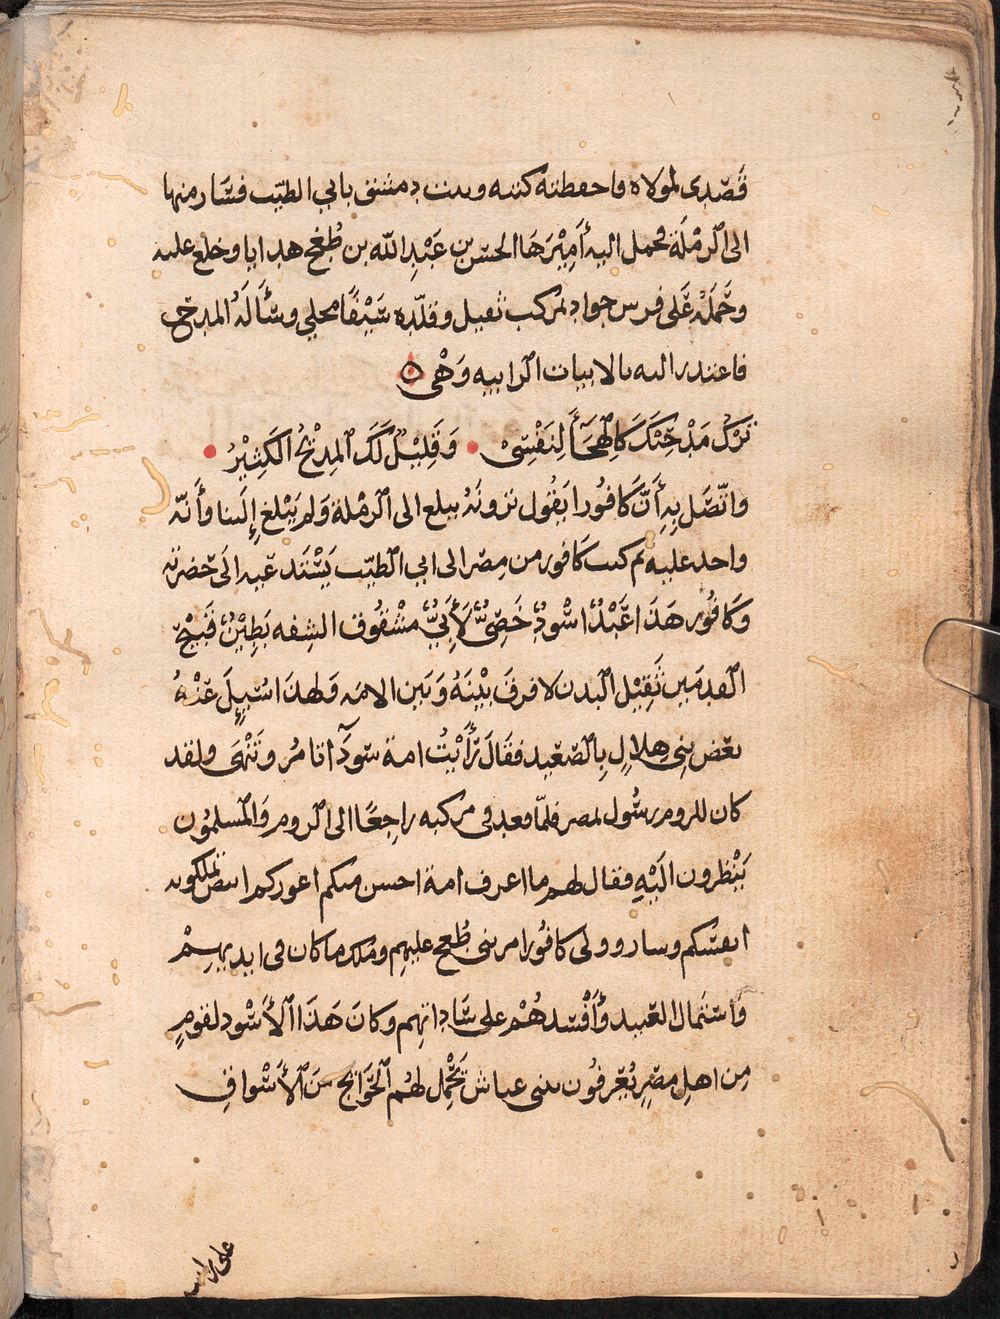 قَصَدى لمولاه فاحفظته كتبه وبنت دمشق بابي الطيّب فسَار منها
الى الرملَة فحمل اليه أَمِيْرَهَا الحسَن بن عَبْدِ الله بن طُغْج هدايا وخلع عليه
وحَمَلَهُ عَلى فرس جواد بمركب ثقيل وقلّده سَيْفًا محلي وسَأَلَهُ المدح
فاعتذر اليه بالابيات الرابيه وَهْى ۞
تَرْكُ مَدْحِيْكَ كَالهِجَآ لِنَفْسِىْ • وَقَلِيْلٌ لَكَ المِدْيْحُ الكَثِيْرُ •
واتّصَل بِهِ أَنَّ كَافُورا يَقُول ترونَهُ يبلع الى الرمْلة وَلم يَبْلغ اِلَينا وأَنّه
واجد عليه ثم كتب كَافور من مِصْر الى ابي الطيّب يَسْتَدعيه الَى حَضرته
وَكَافُور هَذَا عَبْدٌ اسْودٌ خَصِىٌّ لَأبِيٌّ مشْقُوق الشفه بَطِيْنٌ قَبِيْح
القدمَين ثَقِيْل البدن لا فرقَ بيْنَهُ وَبَين الامَه وَلهذَا سُئِيلَ عَنْهُ
بعْض بَنِى هِلالٍ بِالصّعِيد فقَالَ رَأَيْتُ امة سَودَآ تامُر وتَنْهَى ولقد
كان للروم رسُول لمصر فلمّا قعد فى مركبه راجِعًا الى الروم وَالمسلمُون
يَنْظرون الَيْهِ فقال لهم ما اعرف امة احسن منكم اعوزكم ابيض تملكونه
انفسَكم وسار وولى كافُور امر بنى طُغج عليهم وملك ما كان فى ايديهِمْ
وَاستمال العَبيد وَأَفْسَدهُمْ على سَاداتِهم وكانَ هَذَا الأَسْود لقومٍ
مِن اهلِ مصرٍ يُعْرفُون ببنى عياش يَحْمِل لهُم الحَوَائج مِنَ الأَسْواقِ
على راسه